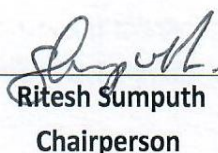 Ritesh Sumputh
Chairperson